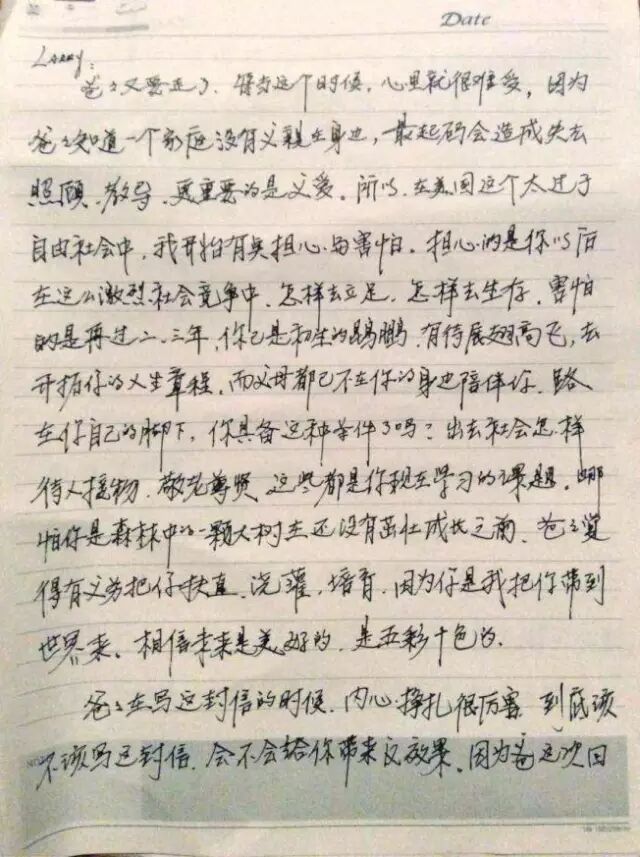 Date
Larry:
爸爸又要走了. 每当这个时候, 心里就很难受, 因为
爸爸知道一个家庭没有父亲在身边, 最起码会造成失去
照顾、教导、更重要的是父爱. 所以, 在美国这个太过于
自由社会中, 我开始有点担心与害怕. 担心的是你以后
在这么激烈社会竞争中, 怎样去立足, 怎样去生存, 害怕
的是再过二、三年, 你已是初生的鹍鹏, 有待展翅高飞, 去
开拓你的人生章程, 而父母都已不在你的身边陪伴你. 路
在你自己的脚下, 你具备这种条件了吗? 出去社会怎样
待人接物, 敬老尊贤, 这些都是你现在学习的课题. 哪
怕你是森林中的一颗大树在还没有茁壮成长之前, 爸爸觉
得有义务把你扶直, 浇灌, 培育, 因为你是我把你带到
世界来. 相信未来是美好的, 是五彩十色的.
爸爸在写这封信的时候, 内心挣扎很厉害, 到底该
不该写这封信, 会不会给你带来反效果. 因为爸这次回